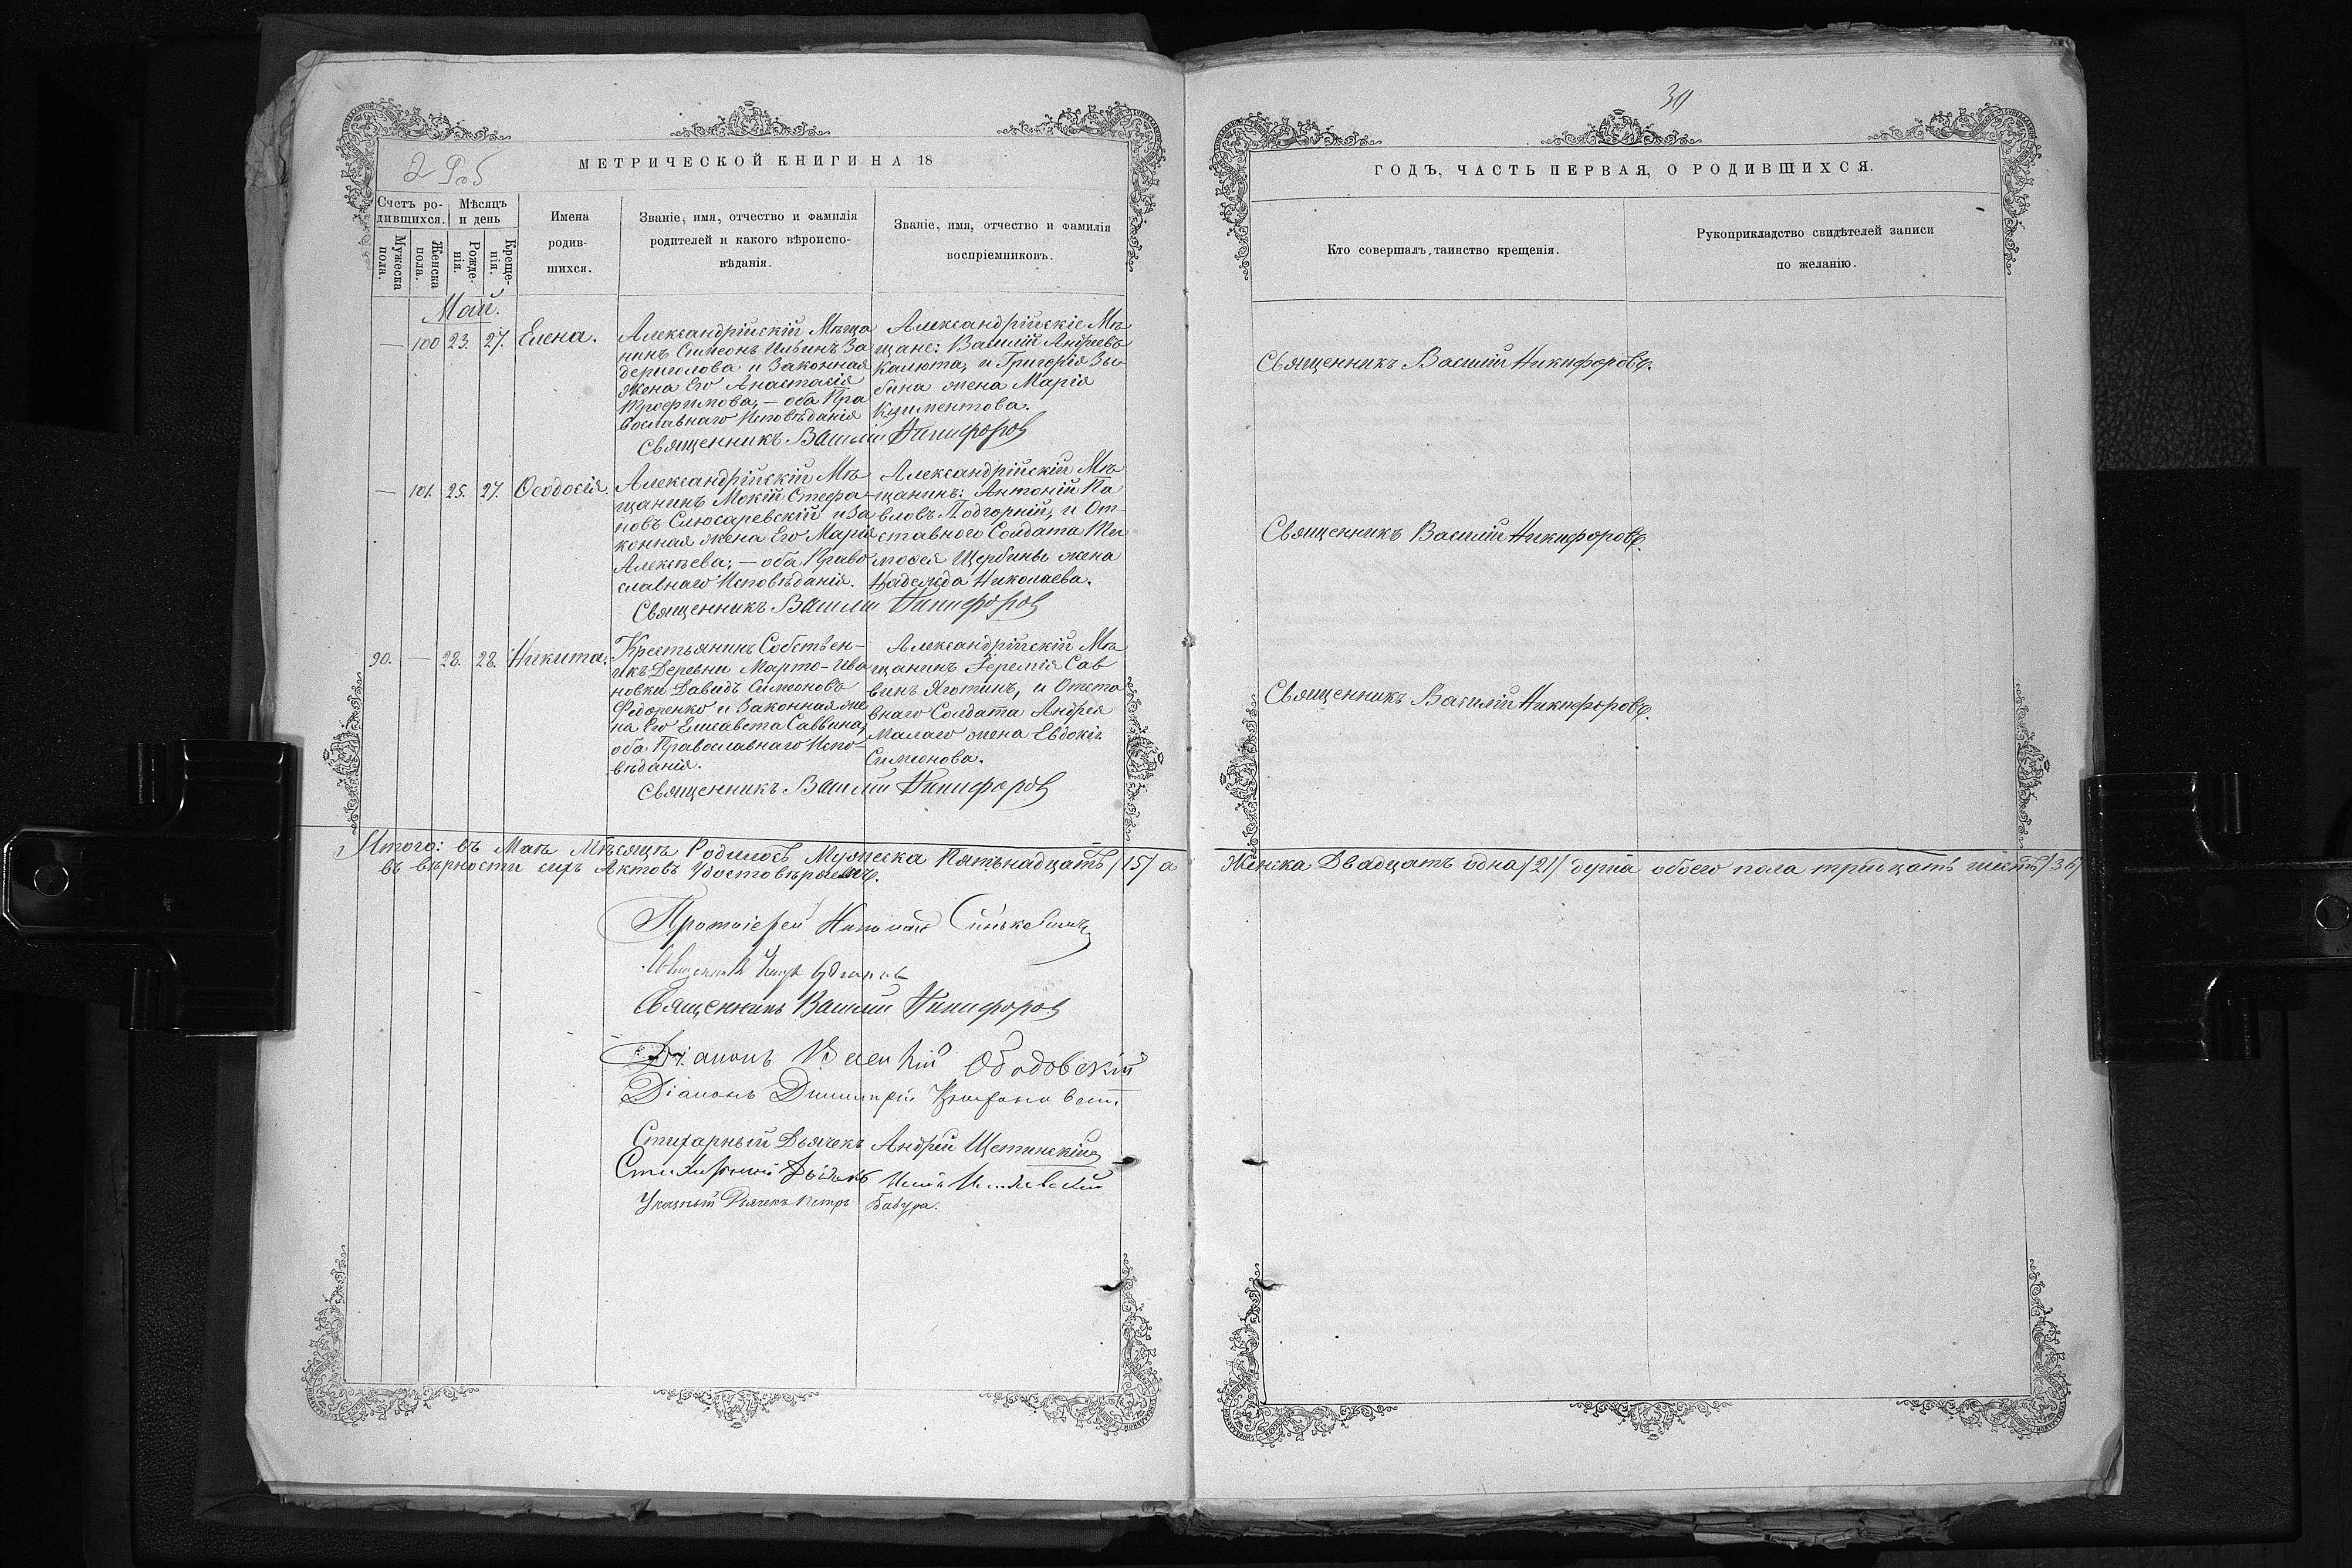 30
МЕТРИЧЕСКОЙ КНИГИ НА 18
Счетъ ро-
дившихся.
Мѣсяцъ
и день
Мужеска
пола.
Женска
пола.
Рожде-
нія.
Креще-
нія.
Имена
родив-
шихся.
Званіе, имя, отчество и фамилія
родителей и какого вѣроиспо-
вѣданія.
Званіе, имя, отчество и фамилія
воспріемниковъ.
Май.
— 100 23. 27. Елена.
Александрійскій Мѣща
нинъ Симеонъ Ильинъ За
дериголова и Законная
жена Его Анастасія
Трофимова, — оба Пра
вославнаго Исповѣданія
Александрійскіе Мѣ
щане: Василій Андреевъ
Калюта, и Григорія Зы
бина жена Марія
Климентова.
Священникъ Василій Никифоровъ
— 101. 25. 27. Ѳеодосія.
Александрійскій Мѣ
щанинъ Мокій Стефа
новъ Слюсаревскій и За
конная жена Его Марія
Алексѣева; — оба Право
славнаго Исповѣданія.
Александрійскій Мѣ
щанинъ: Антоній Па
вловъ Подгорній, и От-
ставного Солдата Ти
моѳея Щербины жена
Надежда Николаева.
Священникъ Василій Никифоровъ
90. — 28. 28. Никита.
Крестьянинъ Собствен-
икъ Деревни Марто-Ива
новки Давидъ Симеоновъ
Федоренко и Законная же
на Его Елисавета Саввина,
оба Православнаго Испо-
вѣданія.
Александрійскій Мѣ
щанинъ Іеремія Сав
винъ Яготинъ, и Отста
внаго Солдата Андрея
Малаго жена Евдокія
Симеонова.
Священникъ Василій Никифоровъ
Итого: въ Маѣ Мѣсяцѣ Родилось Мужеска Пятьнадцать /15/ а
въ вѣрности сихъ Актовъ Удостовѣряемъ.
Протоіерей Николай
Священникъ
Священникъ Василій Никифоровъ
Діаконъ Ободовскій
Діаконъ Димитрій
Стихарный Дьячекъ Андрей Щетинскій
Стихарный
Указный Дьячекъ Петръ Бабура.
ГОДЪ, ЧАСТЬ ПЕРВАЯ, О РОДИВШИХСЯ.
Кто совершалъ таинство крещенія.
Рукоприкладство свидѣтелей записи
по желанію.
Священникъ Василій Никифоровъ.
Священникъ Василій Никифоровъ.
Священникъ Василій Никифоровъ.
Женска Двадцать одна /21/ обоего пола тридцать шесть /36/